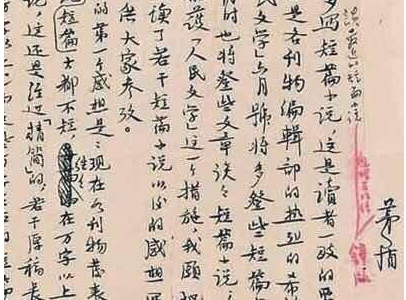 谈最近的短篇小说
茅盾
多写短篇小说，这是读者一致的
是各刊物编辑部的热烈的希
民文学》六月号将多登些短篇
时也将登些文章谈谈短篇小说，
护《人民文学》这一个措施，我愿把
读了若干短篇小说以后的感想写
供大家参考。
的第一个感想是：现在各刊物发表
短篇小说都不短，往往在万字以上
说，这还是经过“精简”的，若干原稿长